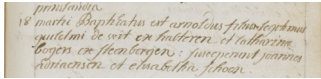 prinslandia
18 martii Baptisatus est arnoldus filius legitimus
guilelmi de wit ex halteren et catharina
bogers ex steenbergen: susceperunt joannes
adriaensen et elisabetha schoen.